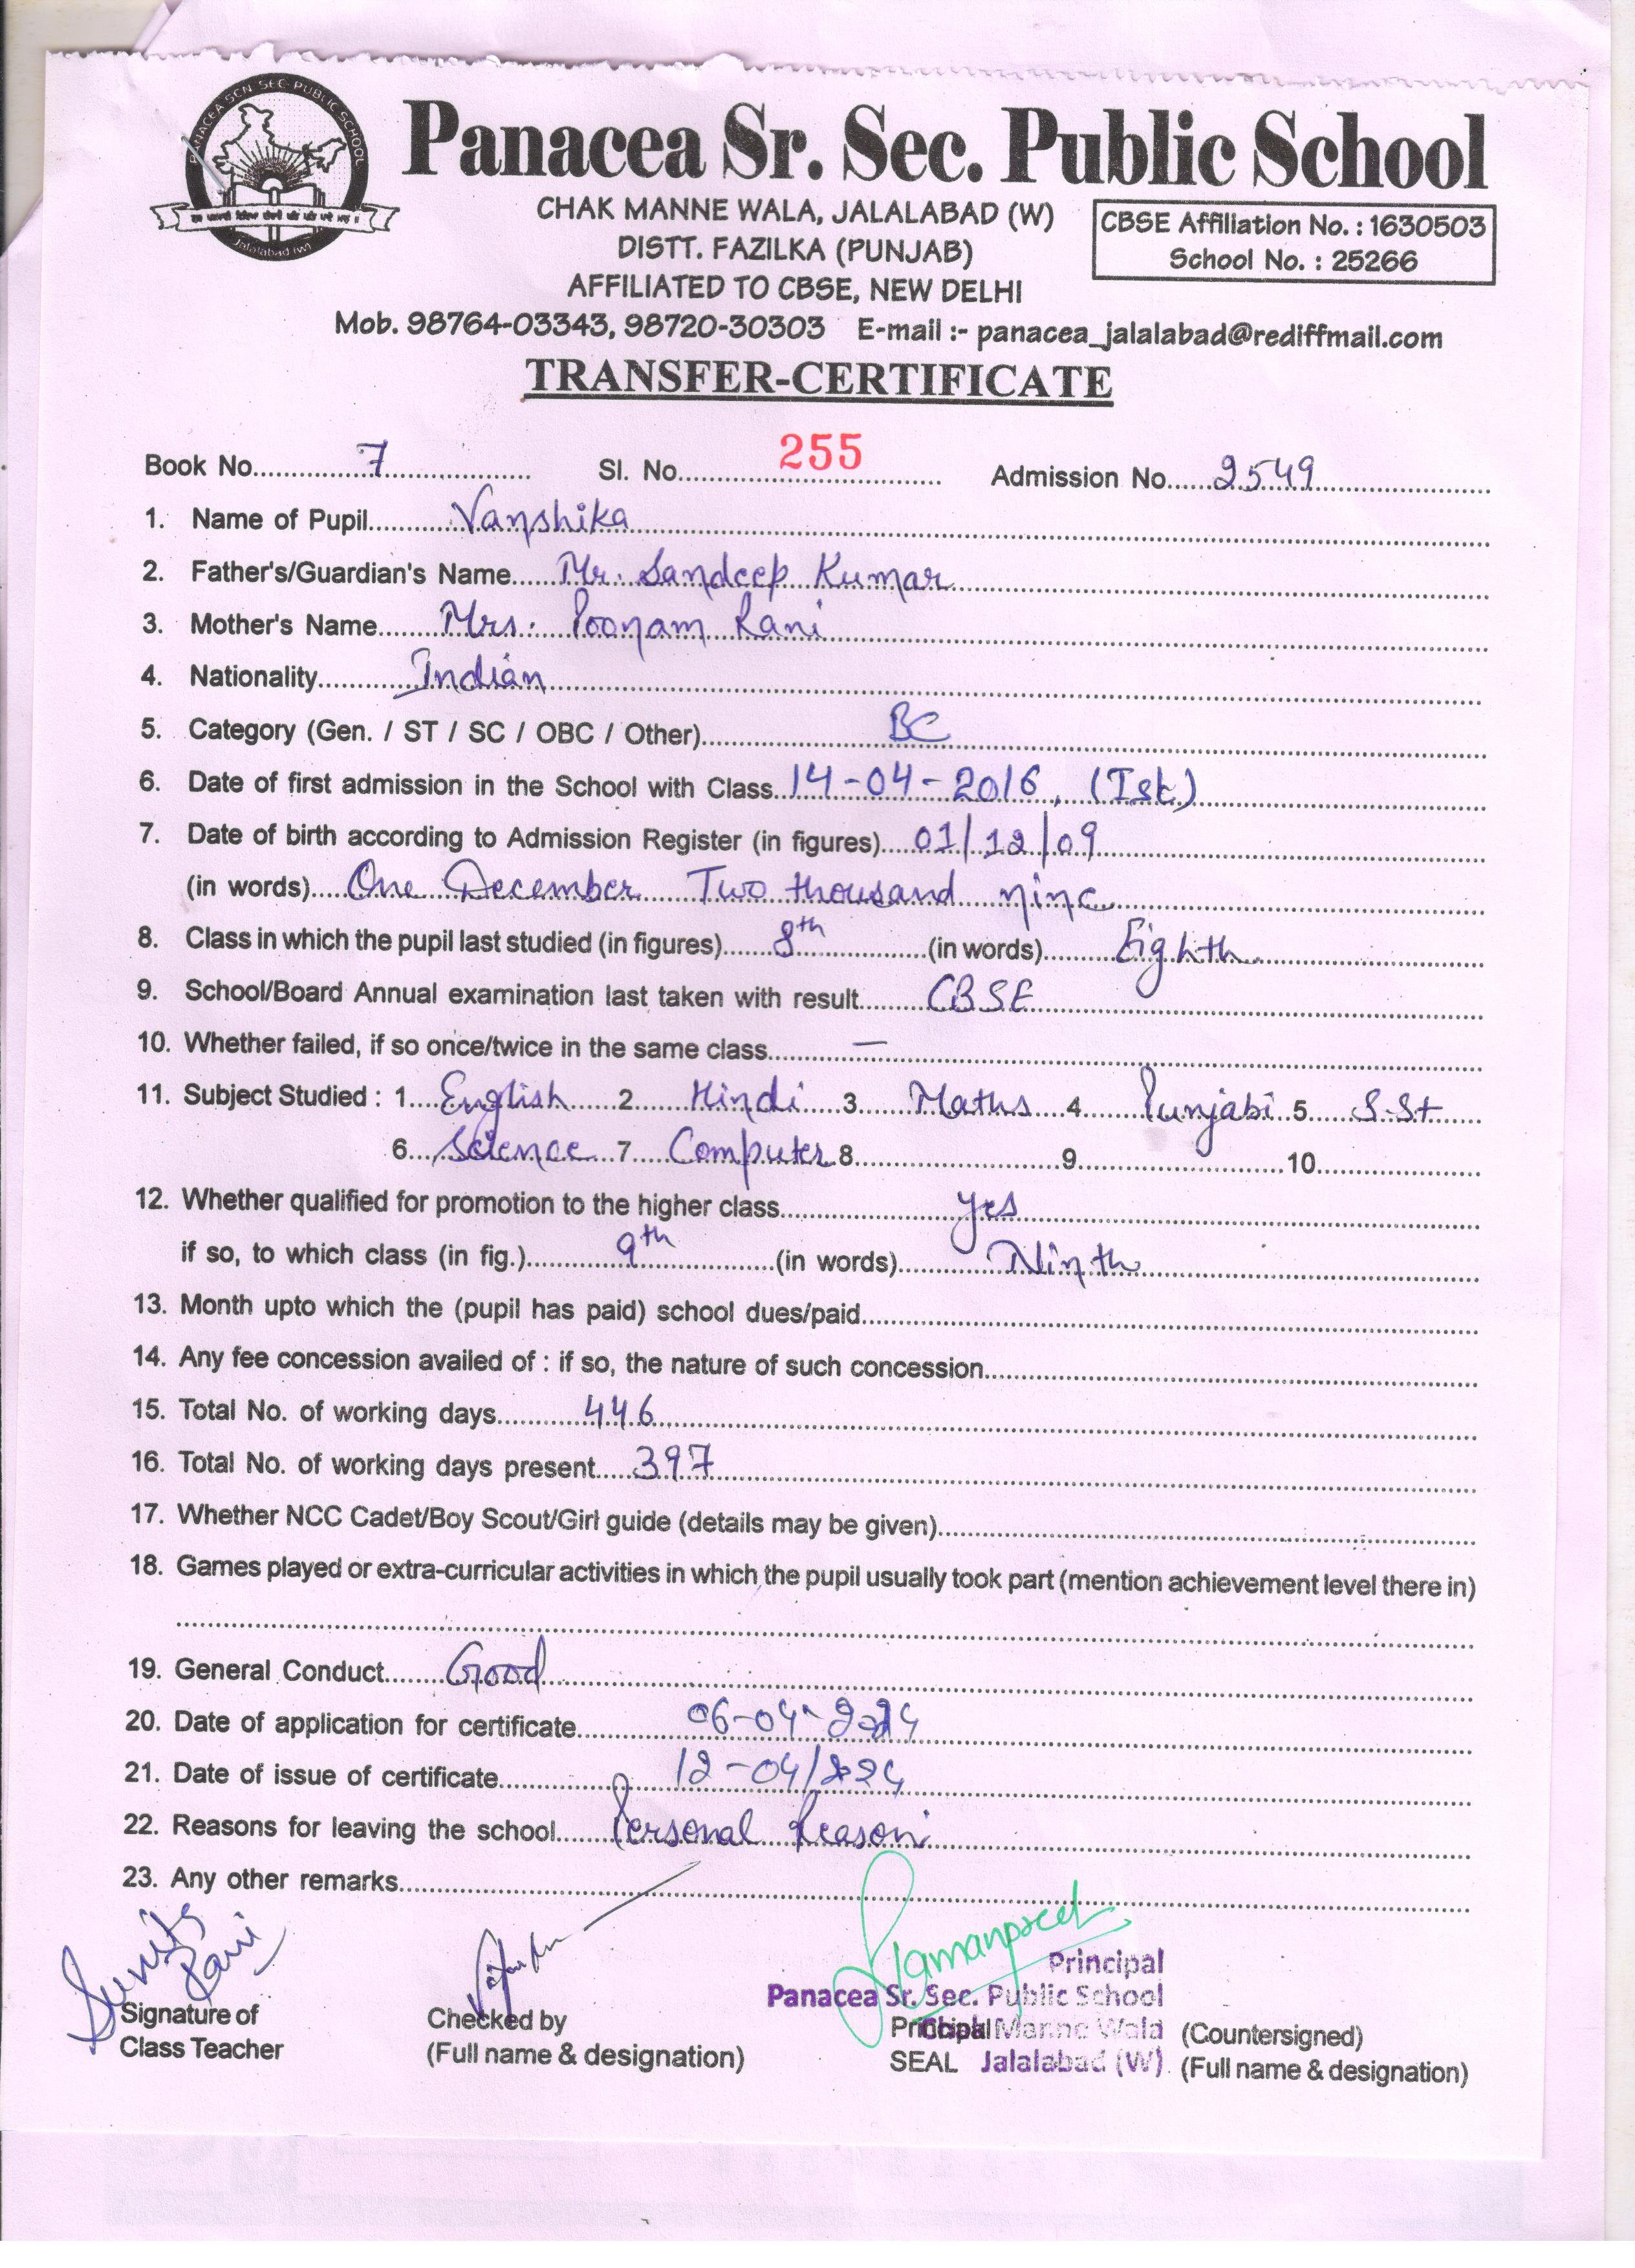 PANACEA SCN SEC-PUBLIC SCHOOL
Jalalabad (W)
Panacea Sr. Sec. Public School
CHAK MANNE WALA, JALALABAD (W)
DISTT. FAZILKA (PUNJAB)
AFFILIATED TO CBSE, NEW DELHI
CBSE Affiliation No. : 1630503
School No. : 25266
Mob. 98764-03343, 98720-30303 E-mail :- panacea_jalalabad@rediffmail.com
TRANSFER-CERTIFICATE
Book No. 7 Sl. No. 255 Admission No. 2549
1. Name of Pupil Vanshika
2. Father's/Guardian's Name Mr. Sandeep Kumar
3. Mother's Name Mrs. Poonam Rani
4. Nationality Indian
5. Category (Gen. / ST / SC / OBC / Other) BC
6. Date of first admission in the School with Class 14-04-2016, (Ist)
7. Date of birth according to Admission Register (in figures) 01/12/09
(in words) One December Two thousand nine
8. Class in which the pupil last studied (in figures) 8th (in words) Eighth
9. School/Board Annual examination last taken with result CBSE
10. Whether failed, if so once/twice in the same class —
11. Subject Studied : 1 English 2 Hindi 3 Maths 4 Punjabi 5 S.St
6 Science 7 Computer 8 9 10
12. Whether qualified for promotion to the higher class yes
if so, to which class (in fig.) 9th (in words) Ninth
13. Month upto which the (pupil has paid) school dues/paid
14. Any fee concession availed of : if so, the nature of such concession
15. Total No. of working days 446
16. Total No. of working days present 397
17. Whether NCC Cadet/Boy Scout/Girl guide (details may be given)
18. Games played or extra-curricular activities in which the pupil usually took part (mention achievement level there in)
19. General Conduct Good
20. Date of application for certificate 06-04-2024
21. Date of issue of certificate 12-04/2024
22. Reasons for leaving the school Personal Reason
23. Any other remarks
Sunita Rani
Signature of
Class Teacher
Checked by
(Full name & designation)
Ramanpreet
Principal
Panacea Sr. Sec. Public School
Chak Manne Wala
Jalalabad (W)
Principal
SEAL
(Countersigned)
(Full name & designation)